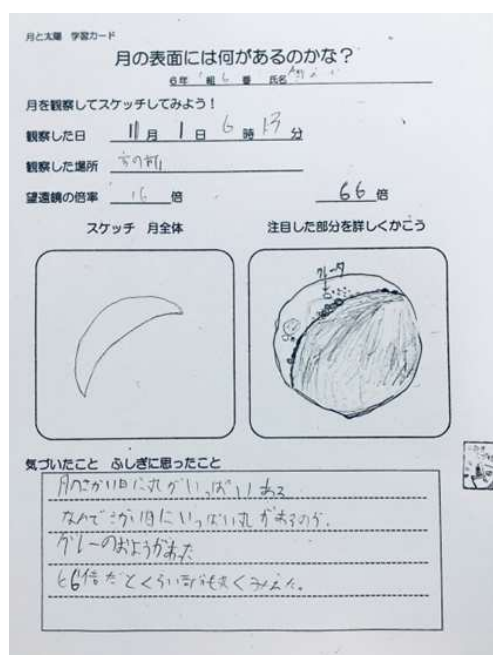 月と太陽 学習カード
月の表面には何があるのかな？
6年 1組 6番 氏名
月を観察してスケッチしてみよう！
観察した日 11月 1日 6時 13分
観察した場所
望遠鏡の倍率 16倍 66倍
スケッチ 月全体 注目した部分を詳しくかこう
クレータ
気づいたこと ふしぎに思ったこと
月のさかい目に丸がいっぱいある
なんでさかい目にいっぱい丸があるのか。
グレーのもようがあった
66倍だとくらい部分も丸くみえた。